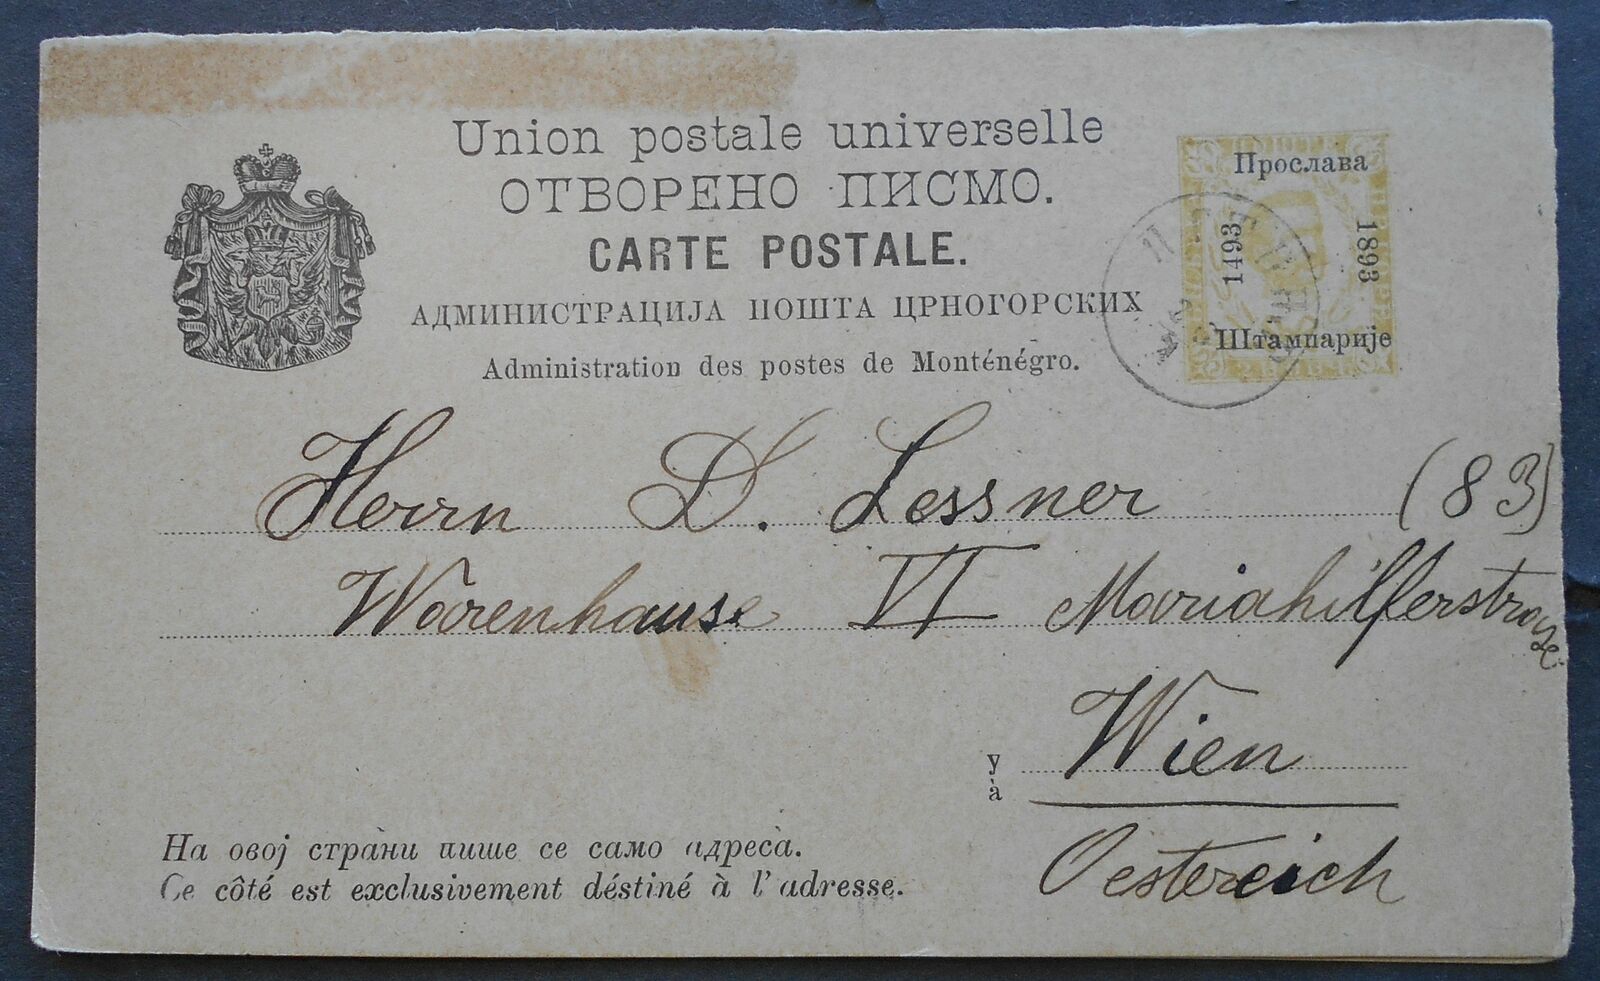 Union postale universelle
ОТВОРЕНО ПИСМО.
CARTE POSTALE.
АДМИНИСТРАЦИЈА ПОШТА ЦРНОГОРСКИХ
Administration des postes de Monténégro.
Прослава
1493
1893
Штампарије
Herrn D. Lessner (83)
Warenhause VI Mariahilferstrasse
у Wien
à
Oestereich
На овој страни пише се само адреса.
Ce côté est exclusivement déstiné à l'adresse.